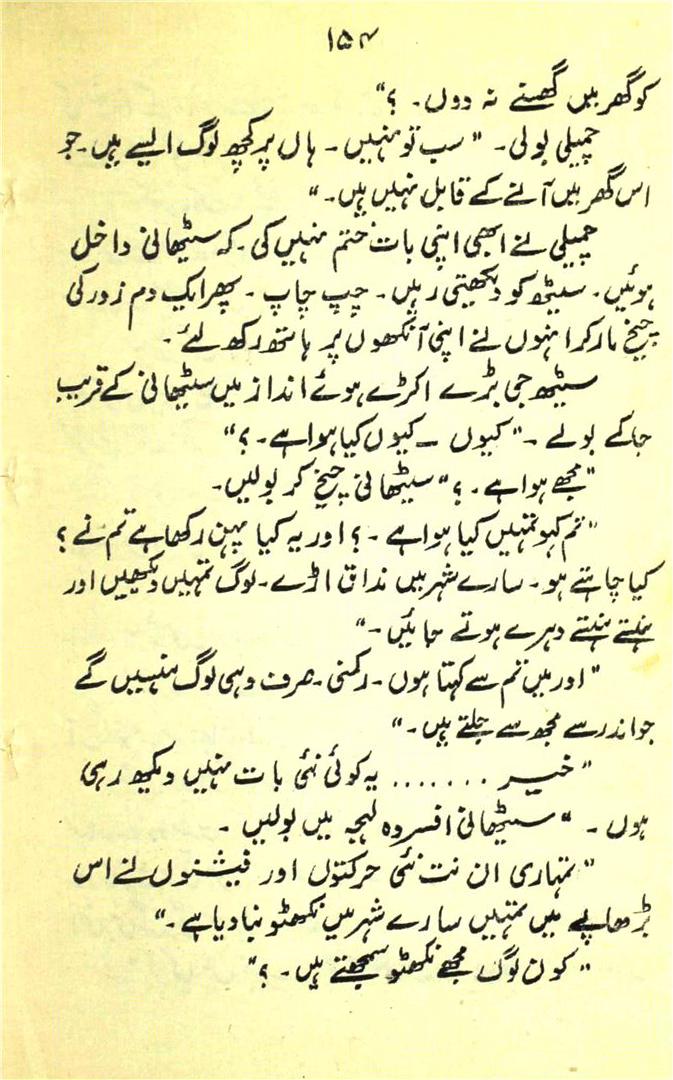 ۱۵۴
کو گھر میں گھسنے نہ دوں۔ ؟"
چمیلی بولی۔ "سب تو نہیں۔ ہاں پر کچھ لوگ ایسے ہیں۔ جو
اس گھر میں آنے کے قابل نہیں ہیں۔"
چمیلی نے ابھی اپنی بات ختم نہیں کی۔ کہ سیٹھانی داخل
ہوئیں۔ سیٹھ کو دیکھتی رہیں۔ چپ چاپ۔ پھر ایک دم زور کی
چیخ مار کر انہوں نے اپنی آنکھوں پر ہاتھ رکھ لئے۔
سیٹھ جی بڑے اکڑے ہوئے انداز میں سیٹھانی کے قریب
جاکے بولے۔ "کیوں ۔ کیوں کیا ہوا ہے۔ ؟"
"مجھے ہوا ہے۔ ؟" سیٹھانی چیخ کر بولیں۔
"تم کہو تمہیں کیا ہوا ہے۔ ؟ اور یہ کیا پہن رکھا ہے تم نے ؟
کیا چاہتے ہو۔ سارے شہر میں مذاق اڑے۔ لوگ تمہیں دیکھیں اور
ہنستے ہنستے دہرے ہوتے جائیں۔"
"اور میں تم سے کہتا ہوں۔ رکمنی۔ صرف وہی لوگ ہنسیں گے
جو اندر سے مجھ سے جلتے ہیں۔"
"خیر ....... یہ کوئی نئی بات نہیں دیکھ رہی
ہوں۔ " سیٹھانی افسردہ لہجہ میں بولیں۔
"تمہاری ان نت نئی حرکتوں اور فیشنوں نے اس
بڑھاپے میں تمہیں سارے شہر میں نکھٹو بنا دیا ہے۔"
"کون لوگ مجھے نکھٹو سمجھتے ہیں۔ ؟"